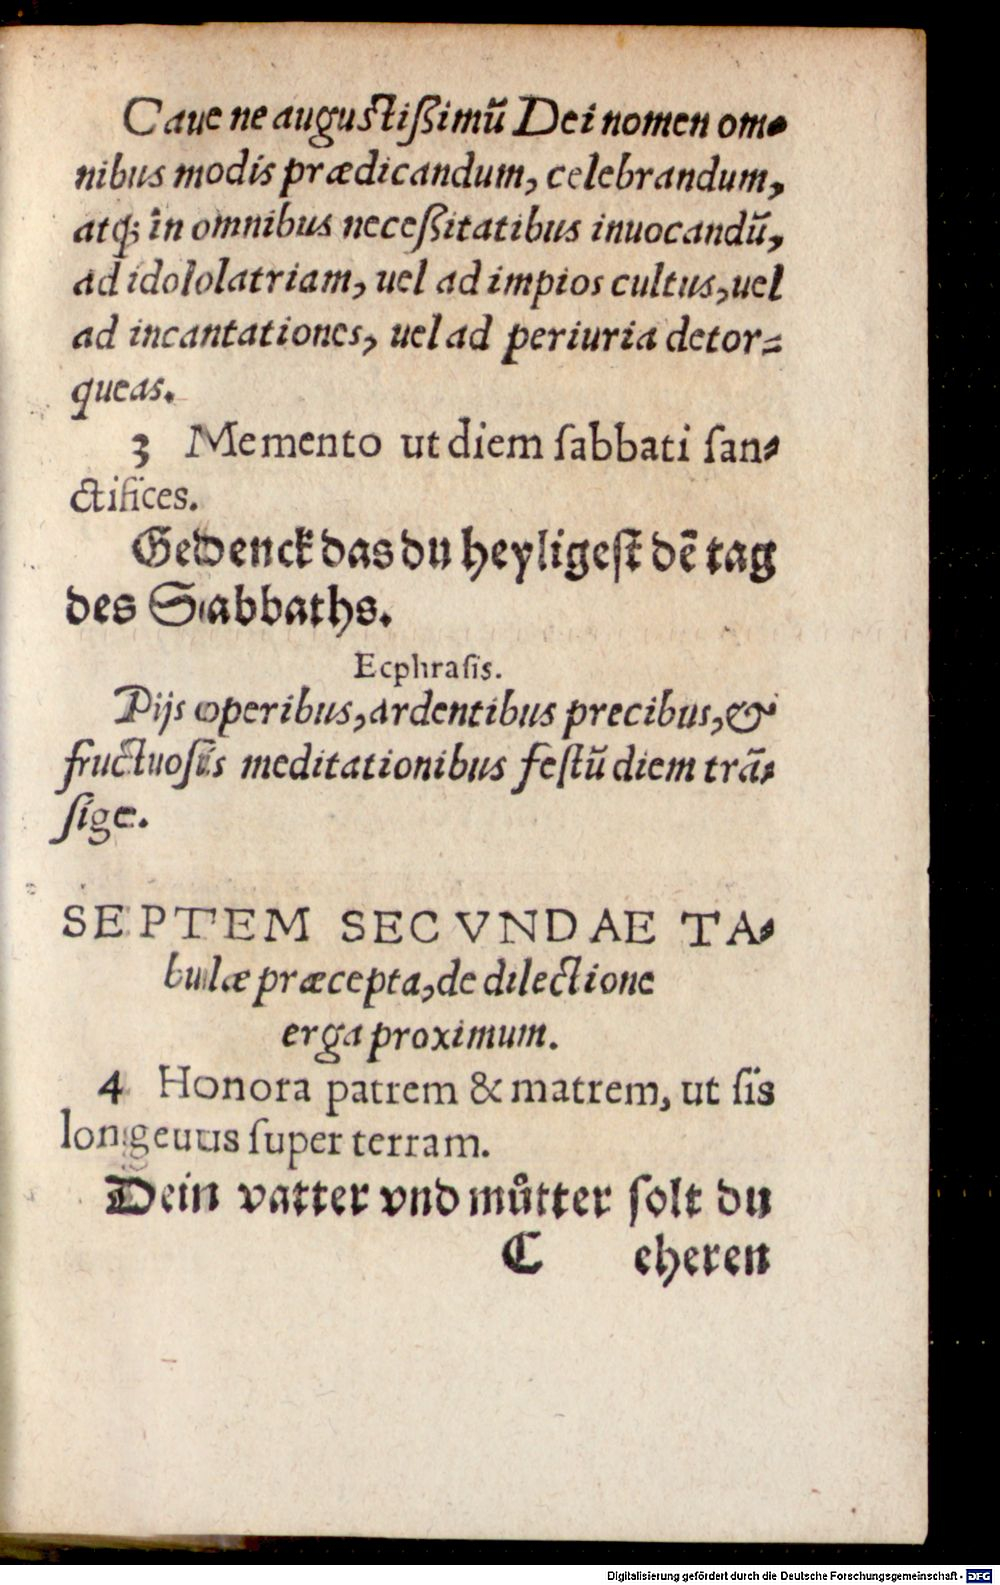 Caue ne augustißimū Dei nomen om-
nibus modis prædicandum, celebrandum,
atq; in omnibus neceßitatibus inuocandū,
ad idololatriam, uel ad impios cultus, uel
ad incantationes, uel ad periuria detor-
queas.
3 Memento ut diem ſabbati ſan-
ctifices.
Gedenck das du heyligeſt dē tag
des Sabbaths.
Ecphraſis.
Pijs operibus, ardentibus precibus, &
fructuoſis meditationibus feſtū diem trā-
ſige.
SEPTEM SECVNDAE TA-
bulæ præcepta, de dilectione
erga proximum.
4 Honora patrem & matrem, ut ſis
longeuus ſuper terram.
Dein vatter vnd můtter ſolt du
C eheren
Digitalisierung gefördert durch die Deutsche Forschungsgemeinschaft - DFG